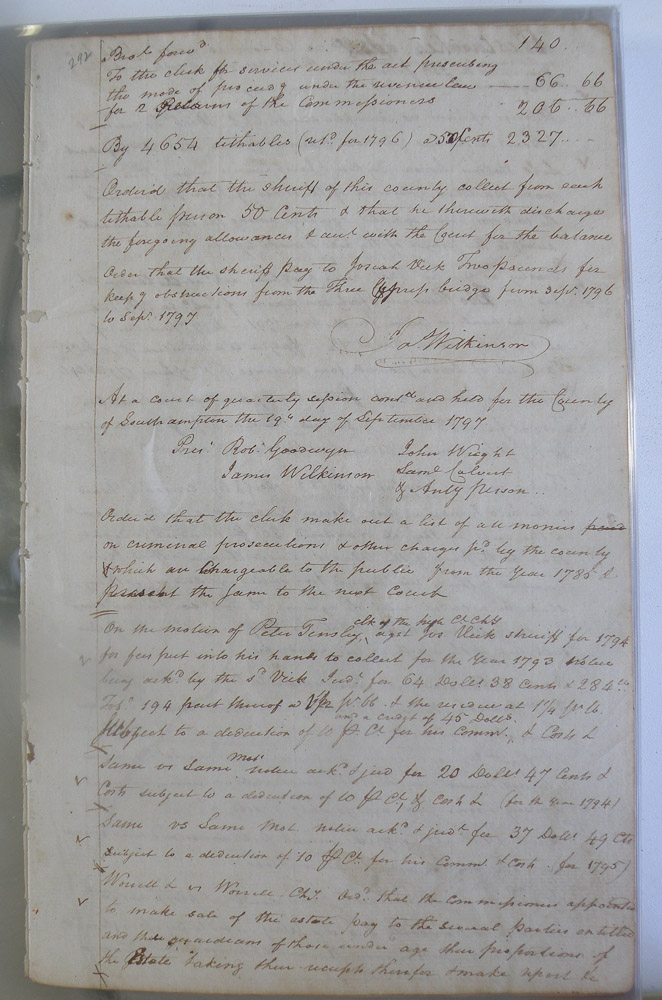 292
Bro.t forw.d 140.
To the clerk for services under the act prescribing
the mode of proceed.g under the revenue law 66 66
for 2 Returns of the Commissioners 206 66
By 4654 tithables (ret.d for 1796) a 50 Cents 2327
Orderd that the sheriff of this county collect from each
tithable person 50 Cents & that he therewith discharge
the foregoing allowances & with the Court for the balance
Order that the sheriff pay to Josiah Vick Two pounds for
keep.g obstructions from the Three Cypress bridge from Sep.r 1796
to Sep.r 1797
Ja.s Wilkinson
At a court of quarterly session cont.d and held for the County
of Southampton the 19.th day of September 1797
Pres.t Rob.t Goodwyn John Wright
James Wilkinson Sam.l Calvert
& Anty Person
Orderd that the clerk make out a list of all monies paid
on criminal prosecutions & other charges p.d by the county
& which are Chargeable to the public from the Year 1785 &
present the same to the next Court
On the motion of Peter Tinsley clk of the high Ct Chy agst Jos Vick sheriff for 1794
for fees put into his hands to collect for the Year 1793 notice
being ack.d by the s.d Vick Jud.t for 64 Doll.s 38 Cents & 284
Tob.o 194 part thereof a p.r lb. & the residue at 1¼ p.r lb
and a credit of 45 Doll.s
Subject to a deduction of 10 p Ct for his Comm.s & Costs &
Same vs Same Mo.n notice ack.d & jud for 20 Doll.s 47 Cents &
Costs subject to a deduction of 10 p Ct & Costs & (for the Year 1794)
Same vs Same Mot. notice ack.d & jud.t for 37 Doll.s 49 Cts
Subject to a deduction of 10 p Ct for his Comm. & Costs for 1795)
Worrell & vs Worrell Chy. Ord.d that the Commissioners appointed
to make sale of the estate pay to the several Parties entitled
and the guardians of those under age their proportions of
the Estate taking their receipts therefor & make report &c